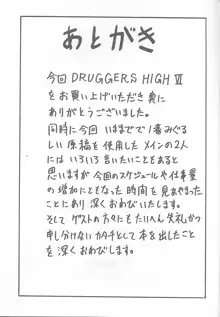 あとがき
今回 DRUGGERS HIGH Ⅵ
をお買い上げいただき 真に
ありがとうございました。
同時に今回 いままでで1番みぐる
しい原稿を使用したメインの2人
にはいろいろ言いたいこともあると
思いますが今回のスケジュールや仕事量
の増加にともなった時間を見あやまった
ことにあり深くおわびいたします。
そして ゲストの方々にもたいへん失礼かつ
申し分けないカタチとして本を出したこと
を深くおわびします。